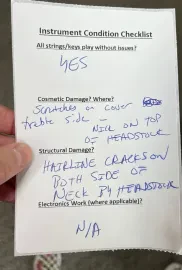 Instrument Condition Checklist
All strings/keys play without issues?
YES
Cosmetic Damage? Where?
Scratches on cover
treble side - NICK ON TOP
OF HEADSTOCK
Structural Damage?
HAIRLINE CRACKS ON
BOTH SIDE OF
NECK BY HEADSTOCK
Electronics Work (where applicable)?
N/A